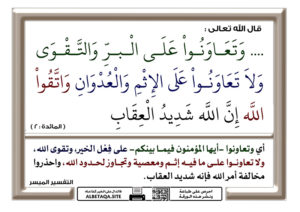 قال الله تعالى :
.... وَتَعَاوَنُوا۟ عَلَى الْبِرِّ وَالتَّقْوَى
وَلَا تَعَاوَنُوا۟ عَلَى الْإِثْمِ وَالْعُدْوَانِ وَاتَّقُوا۟
اللَّه إِنَّ اللَّه شَدِيدُ الْعِقَابِ
(المائدة : ٢)
أي وتعاونوا -أيها المؤمنون فيما بينكم- على فِعْل الخير، وتقوى الله،
ولا تعاونوا على ما فيه إثم ومعصية وتجاوز لحدود الله، واحذروا
مخالفة أمر الله فإنه شديد العقاب.
التفسير الميسر
احرص على طباعة
ونشر هذه البطاقة
ALBETAQA.SITE